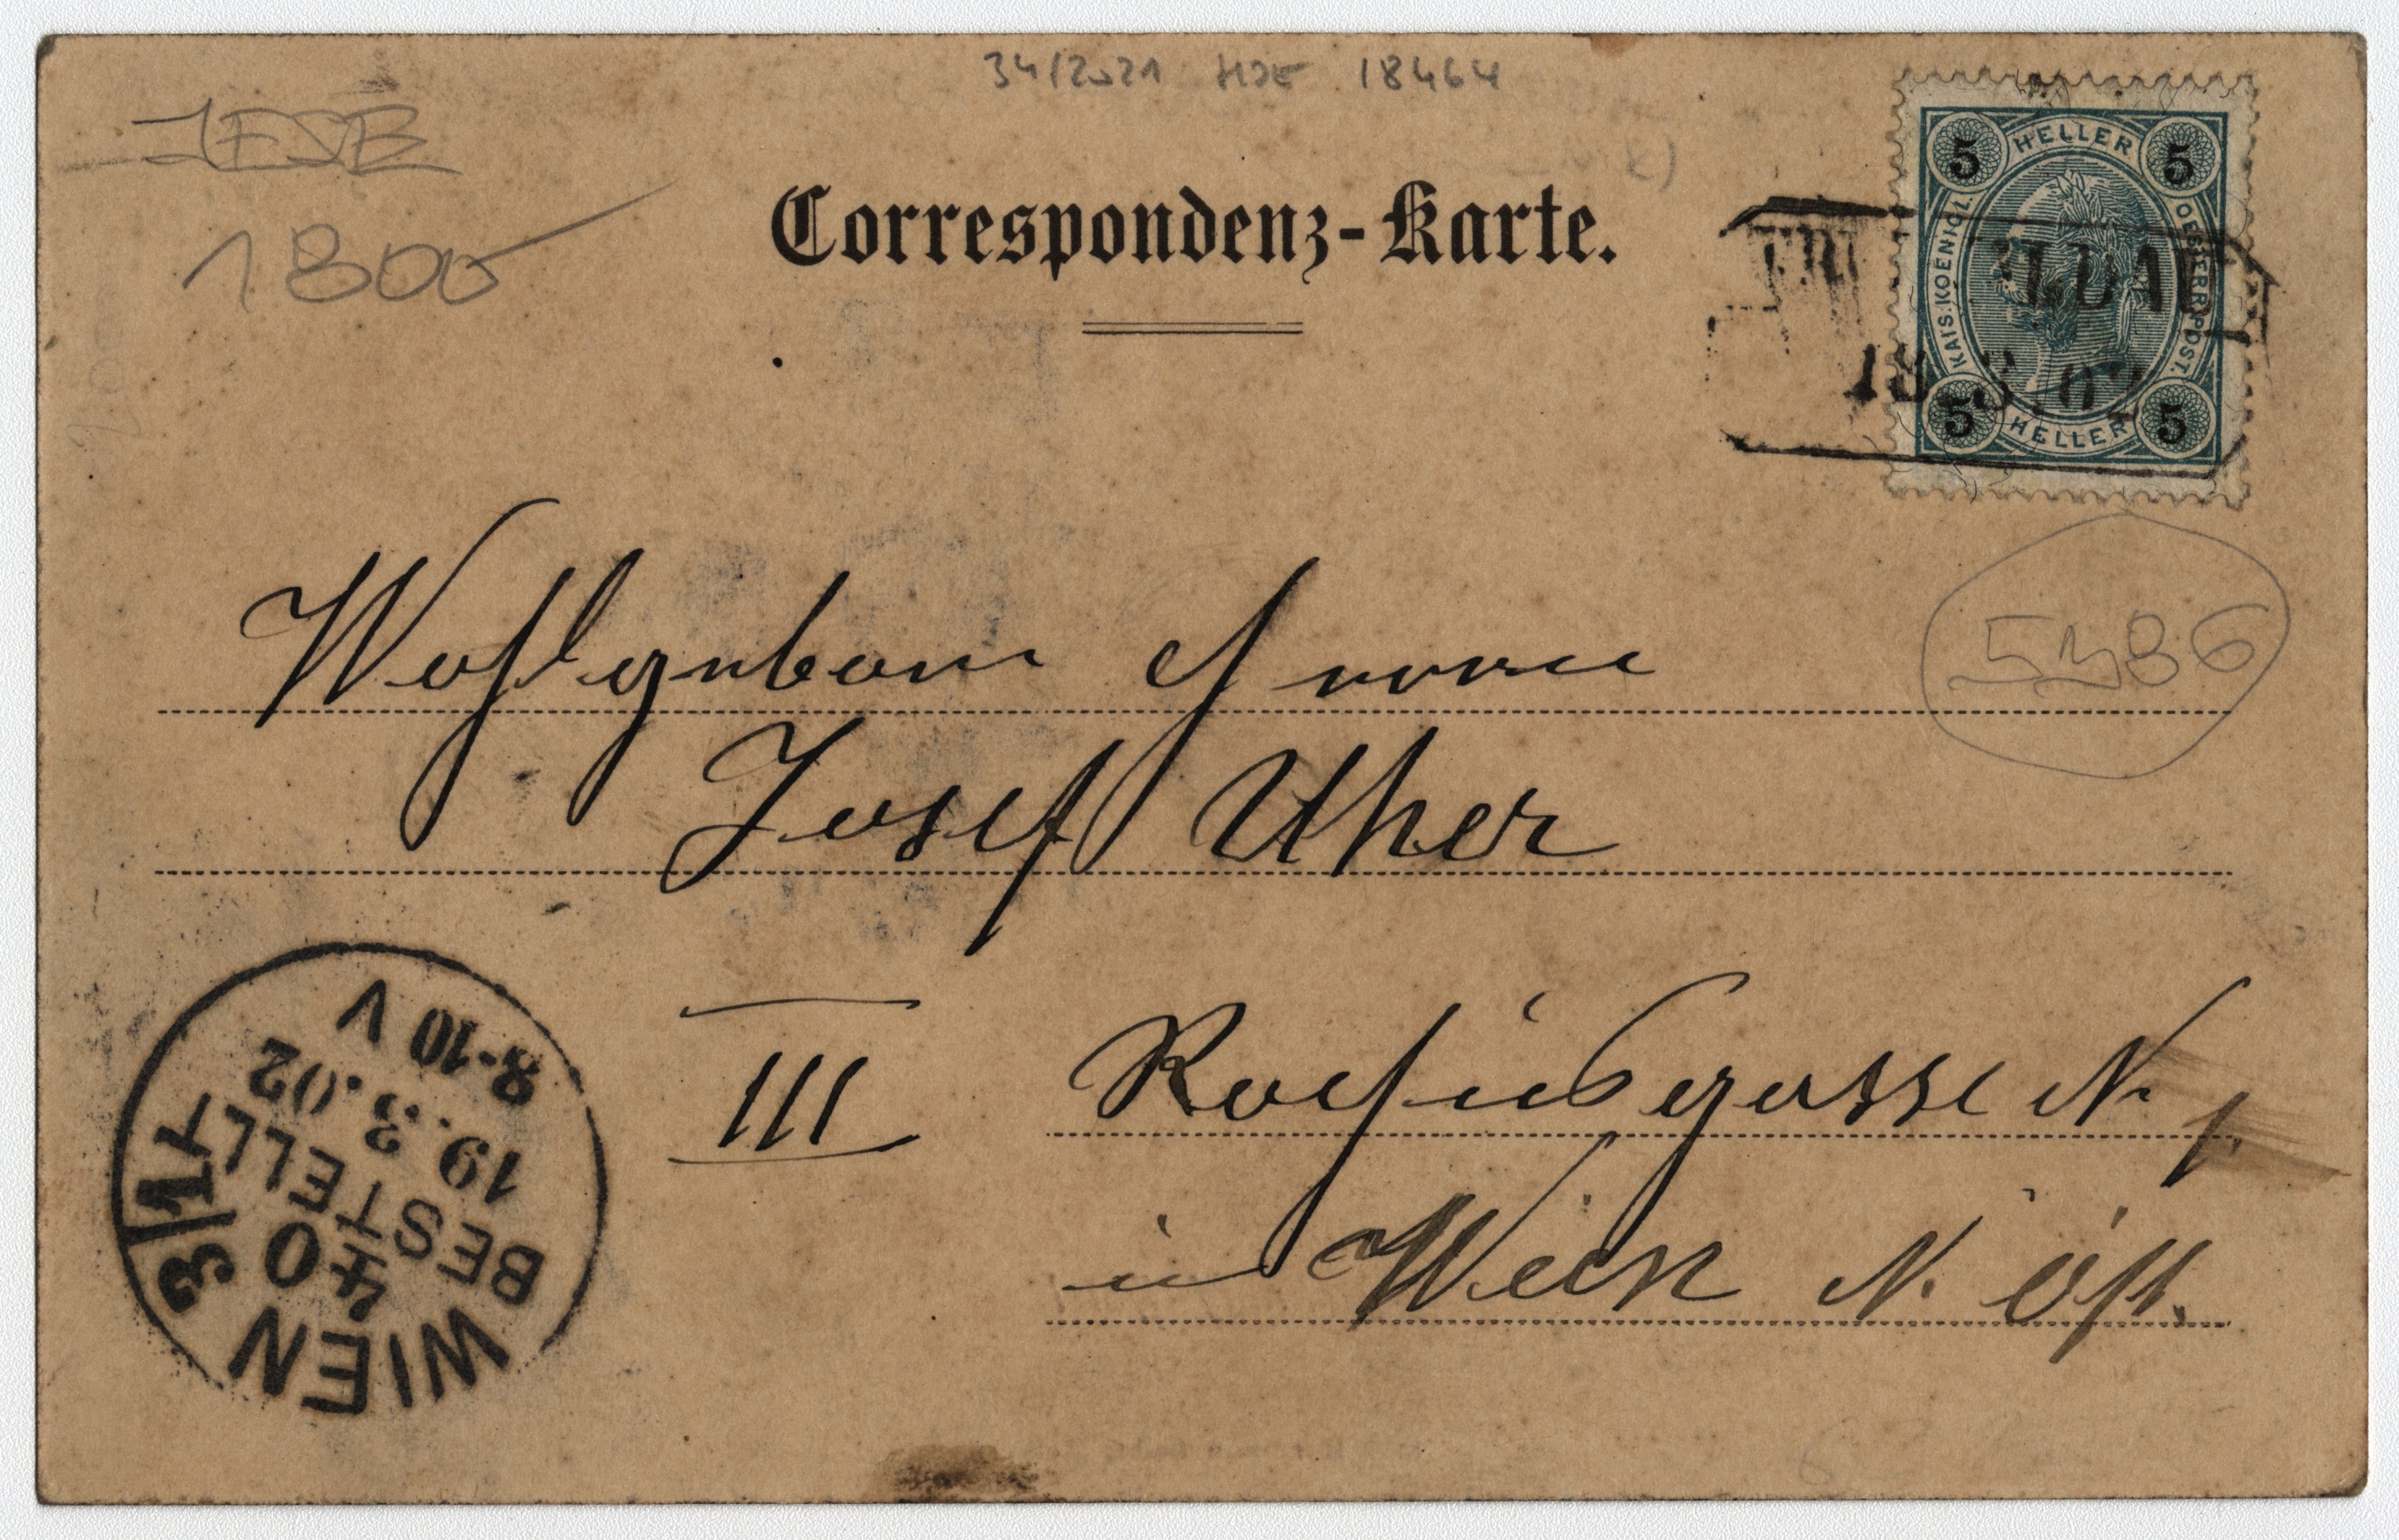 34/2021 HJE 18464
JESB
1800
Correspondenz-Karte.
5 HELLER 5
KAIS. KOENIGL. OESTERR. POST.
5 HELLER 5
18.3.02
5386
Wohlgeboren Herrn
Josef Uher
III Rochusgasse N. 1.
in Wien N. Öst.
WIEN 3/1
40
BESTELLT
19.3.02
8-10 V